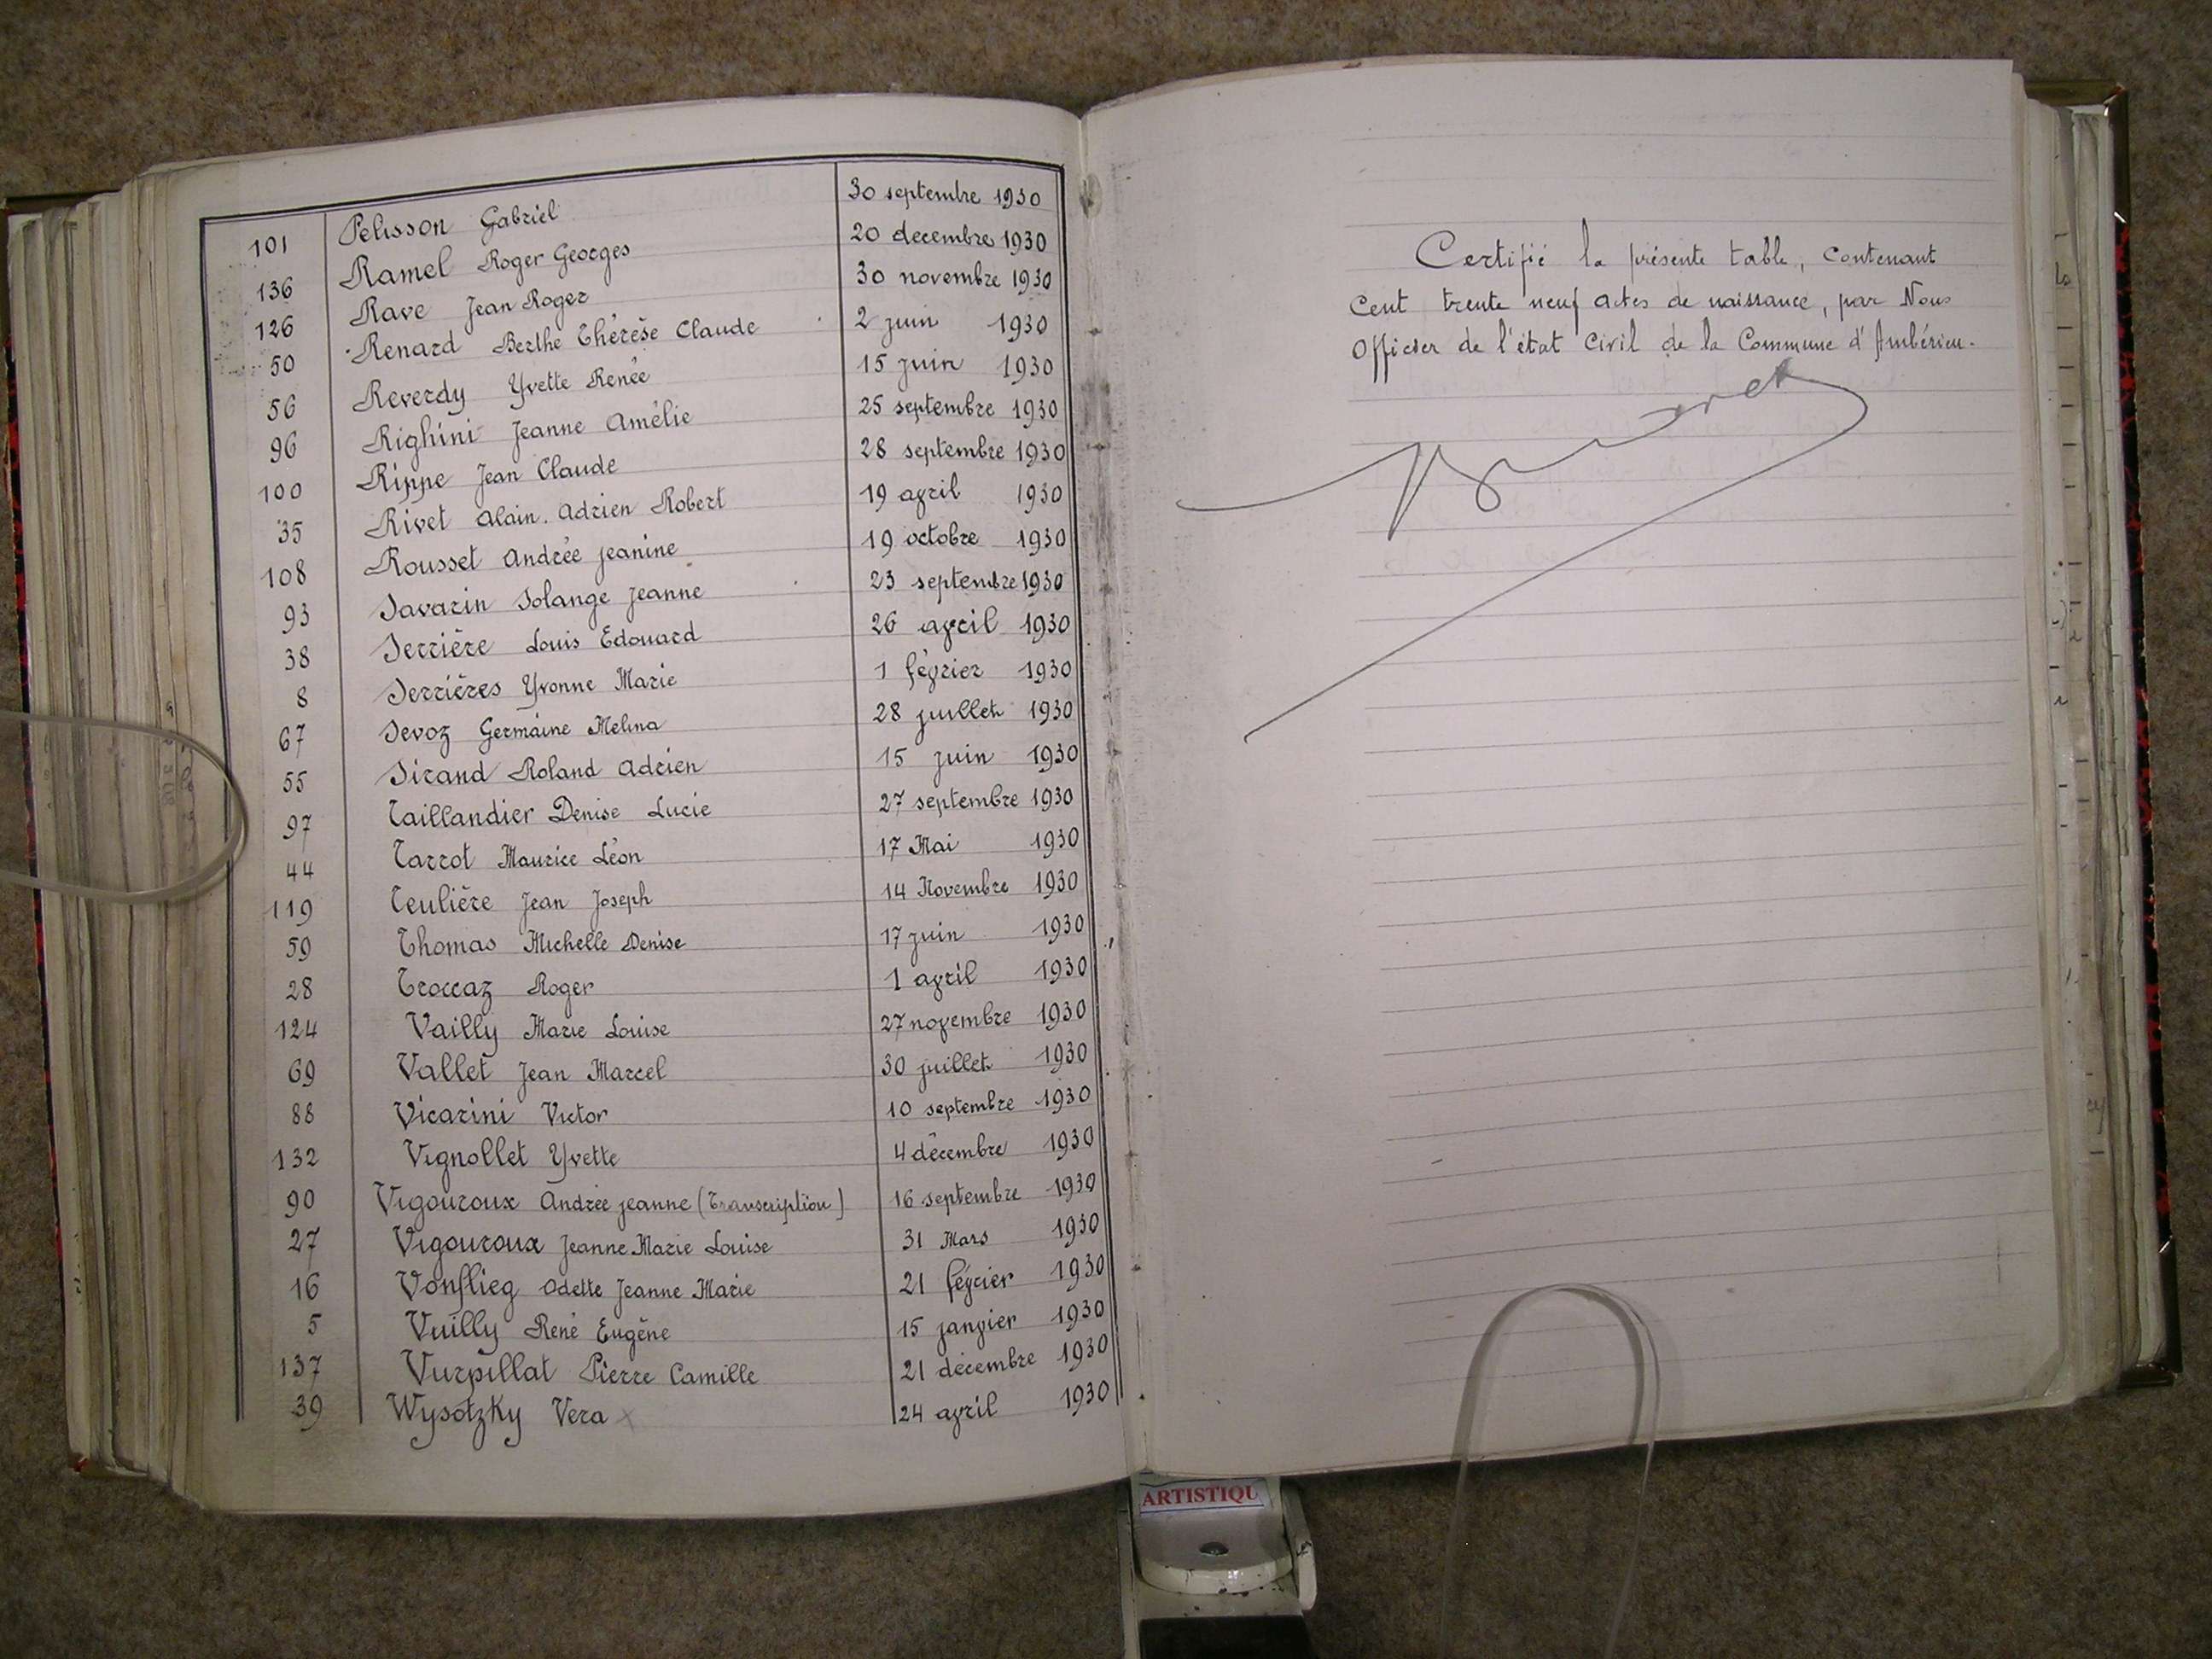 101 Pelisson Gabriel 30 septembre 1930
136 Ramel Roger Georges 20 decembre 1930
126 Rave Jean Roger 30 novembre 1930
50 Renard Berthe Thérèse Claude 2 juin 1930
56 Reverdy Yvette Renée 15 juin 1930
96 Righini Jeanne Amélie 25 septembre 1930
100 Rippe Jean Claude 28 septembre 1930
35 Rivet Alain. Adrien Robert 19 avril 1930
108 Rousset Andrée Jeanine 19 octobre 1930
93 Savarin Solange Jeanne 23 septembre 1930
38 Serrière Louis Edouard 26 avril 1930
8 Serrières Yvonne Marie 1 février 1930
67 Sevoz Germaine Melina 28 juillet 1930
55 Sirand Roland Adrien 15 juin 1930
97 Taillandier Denise Lucie 27 septembre 1930
44 Tarrot Maurice Léon 17 Mai 1930
119 Teulière Jean Joseph 14 Novembre 1930
59 Thomas Michelle Denise 17 juin 1930
28 Troccaz Roger 1 avril 1930
124 Vailly Marie Louise 27 novembre 1930
69 Vallet Jean Marcel 30 juillet 1930
88 Vicarini Victor 10 septembre 1930
132 Vignollet Yvette 4 décembre 1930
90 Vigouroux Andrée Jeanne (Transcription) 16 septembre 1930
27 Vigouroux Jeanne Marie Louise 31 Mars 1930
16 Vonflieg Odette Jeanne Marie 21 février 1930
5 Vuilly René Eugène 15 janvier 1930
137 Vurpillat Pierre Camille 21 décembre 1930
39 Wysotzky Vera 24 avril 1930
Certifié la présente table, contenant
Cent trente neuf actes de naissance, par Nous
Officier de l'état Civil de la Commune d'Ambérieu.
ARTISTIQU